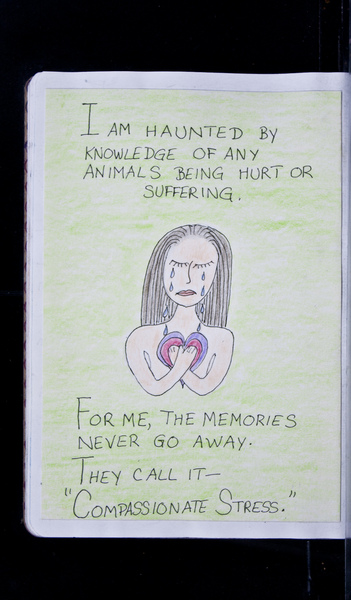 I AM HAUNTED BY
KNOWLEDGE OF ANY
ANIMALS BEING HURT OR
SUFFERING.
FOR ME, THE MEMORIES
NEVER GO AWAY.
THEY CALL IT—
"COMPASSIONATE STRESS."